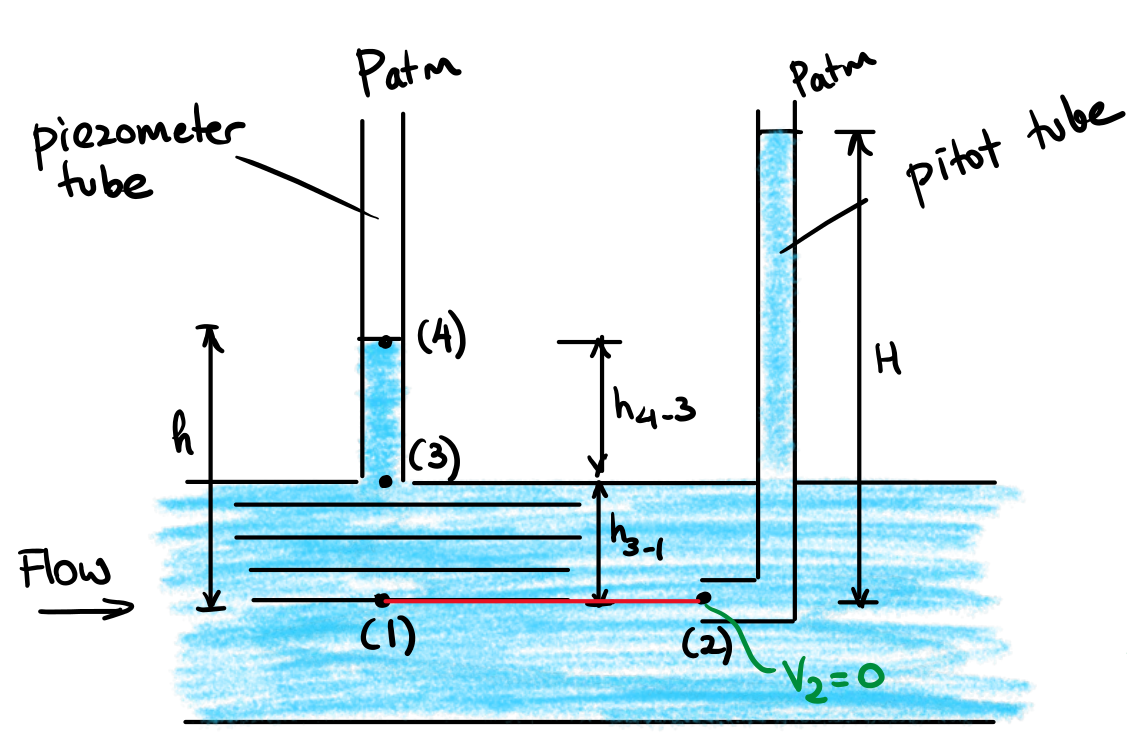 Patm
Patm
piezometer
tube
pitot tube
(4)
h
h4-3
H
(3)
h3-1
Flow
(1)
(2)
V2=0